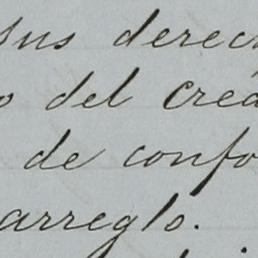 sus derec
o del Cré
de confo
arreglo.